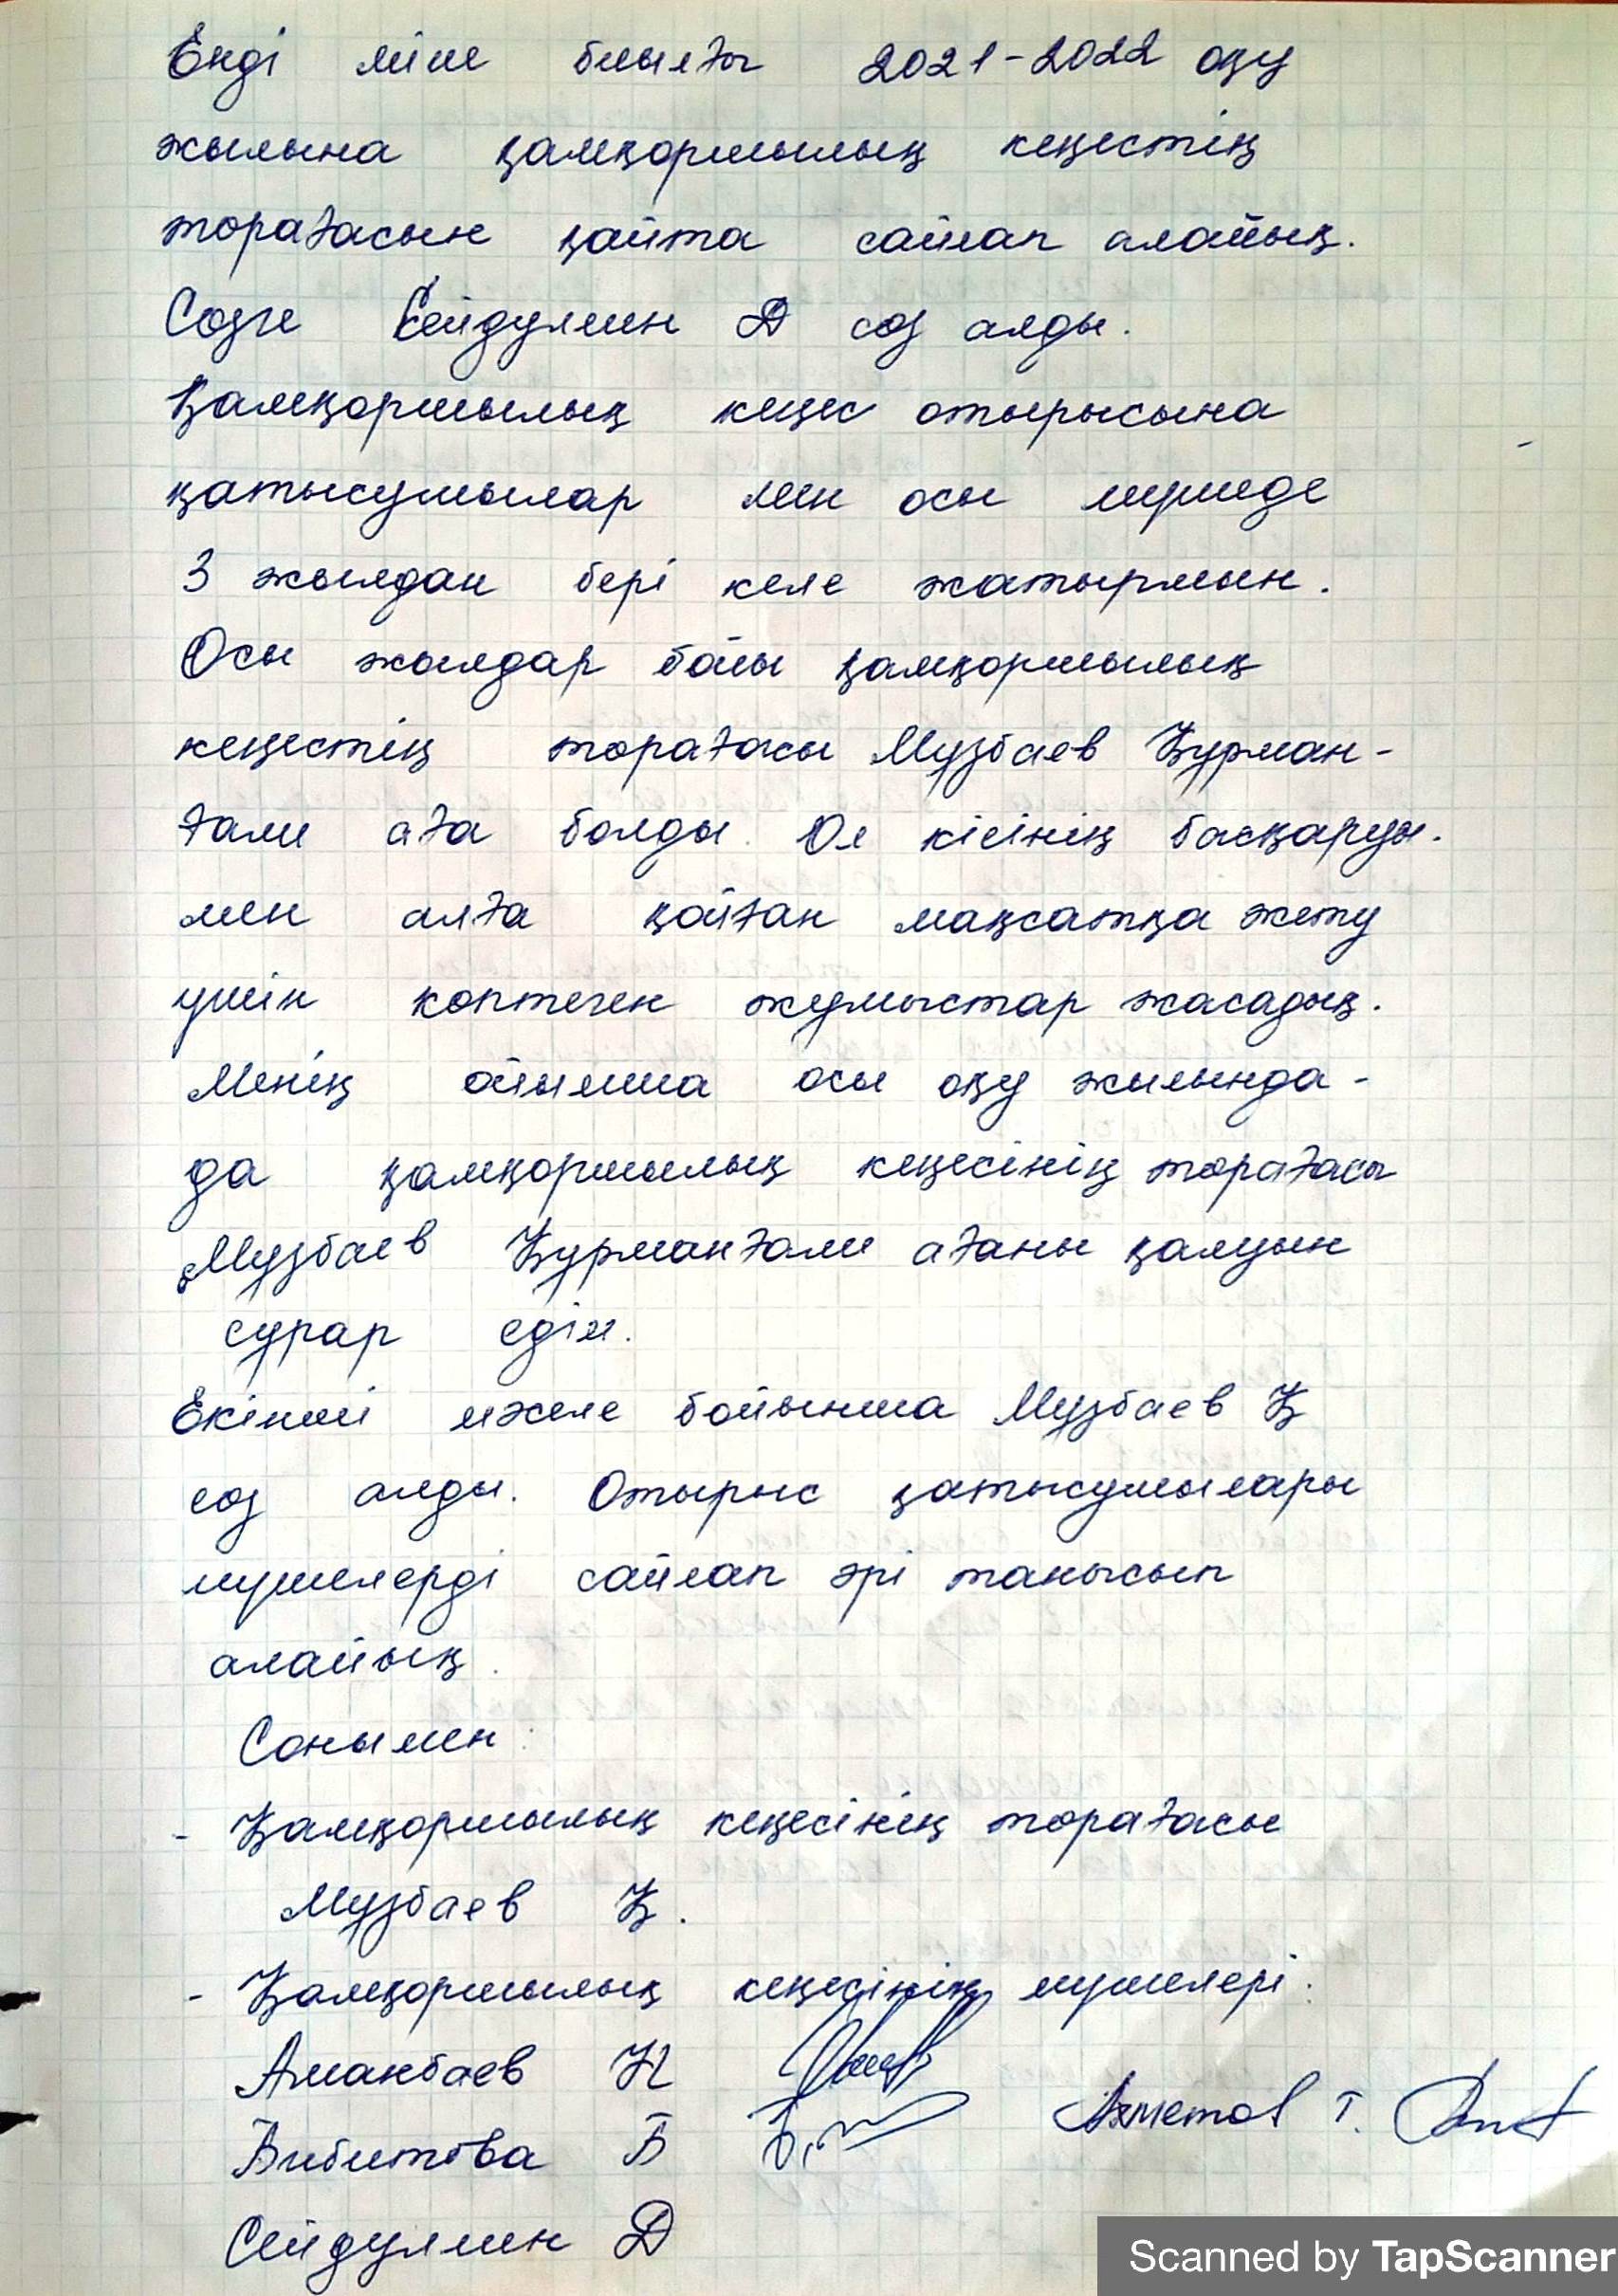 Енді міне биылғы 2021-2022 оқу
жылына қамқоршылық кеңестің
торағасын қайта сайлап алайық.
Созге Сейдулшин Д соз алды.
Қамқоршылық кеңес отырысына
қатысушылар мен осы мушеде
3 жылдан бері келе жатырмын.
Осы жылдар бойы қамқоршылық
кеңестің торағасы Музбаев Құрман-
ғали аға болды. Ол кісінің басқаруы-
мен алға қойған мақсатқа жету
үшін коптеген жұмыстар жасадық.
Менің ойымша осы оқу жылында-
да қамқоршылық кеңесінің торағасы
Музбаев Құрманғали ағаны қалуын
сұрар едім.
Екінші мәселе бойынша Музбаев Қ
соз алды. Отырыс қатысушылары
мушелерді сайлап әрі танысып
алайық.
Сонымен:
- Қамқоршылық кеңесінің торағасы
Музбаев Қ.
- Қамқоршылық кеңесінің мушелері:
Аманбаев Н
Ахметов Т.
Бибитова Б
Сейдулшин Д
Scanned by TapScanner